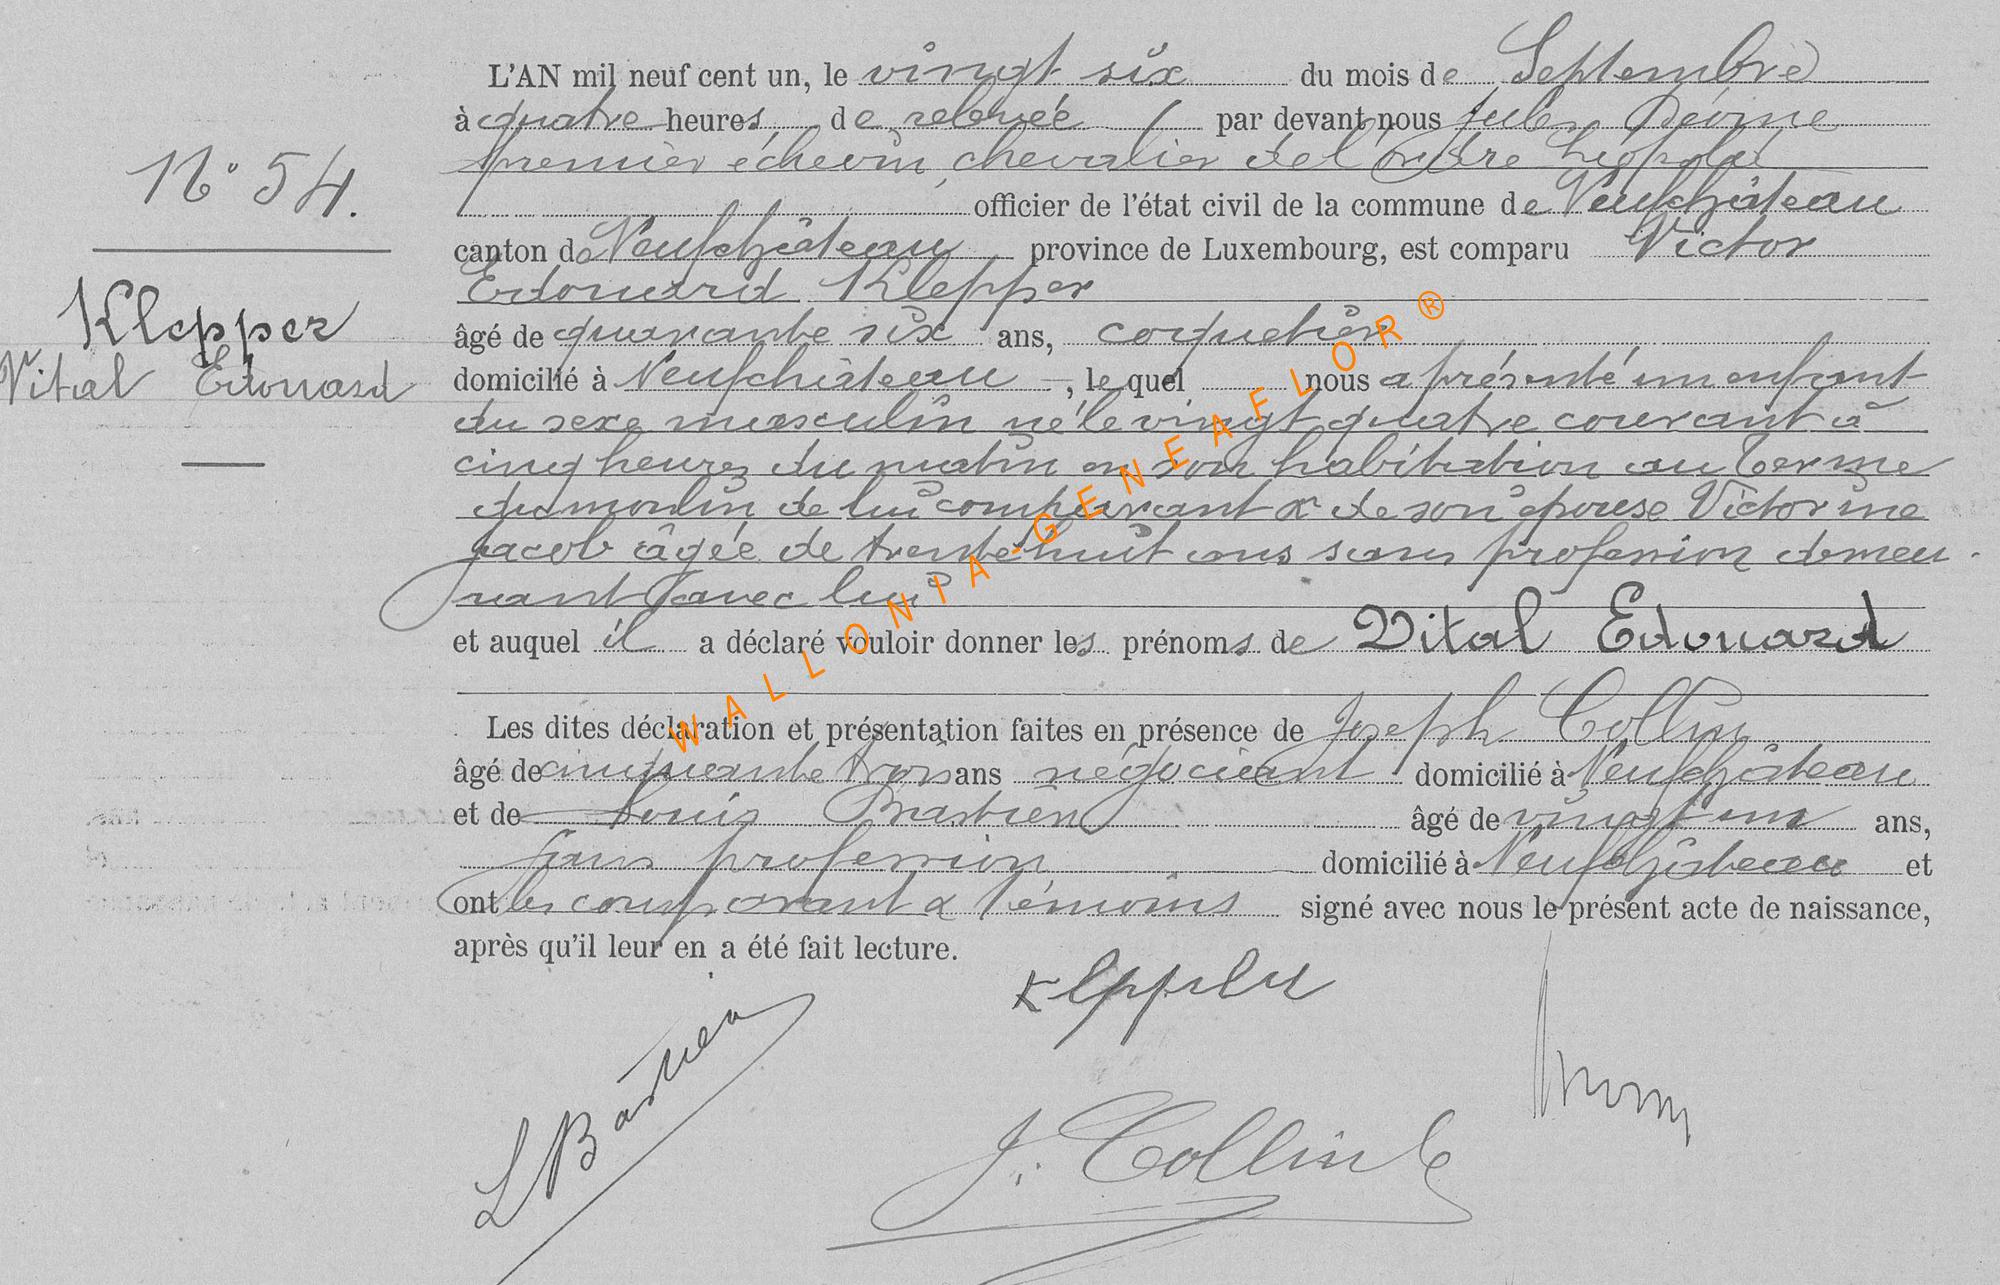 N° 54.
Klepper
Vital Edouard
L'AN mil neuf cent un, le vingt six du mois de Septembre
à quatre heures de relevée par devant nous Jules
premier échevin, chevalier de l'ordre Léopold
officier de l'état civil de la commune de Neufchâteau
canton de Neufchâteau province de Luxembourg, est comparu Victor
Edouard Klepper
âgé de quarante six ans, coquetier
domicilié à Neufchâteau, lequel nous a présenté un enfant
du sexe masculin né le vingt quatre courant à
cinq heures du matin en son habitation au Terme
du moulin de lui comparant & de son épouse Victorine
Jacob âgée de trente huit ans sans profession demeu
rant avec lui
et auquel il a déclaré vouloir donner les prénoms de Vital Edouard
Les dites déclaration et présentation faites en présence de Joseph Collin
âgé de cinquante trois ans négociant domicilié à Neufchâteau
et de Louis Bastien âgé de vingt un ans,
sans profession domicilié à Neufchâteau et
ont les comparant & témoins signé avec nous le présent acte de naissance,
après qu'il leur en a été fait lecture.
Klepper
L Bastien
J. Collin
WALLONIA-GENEAFLOR®